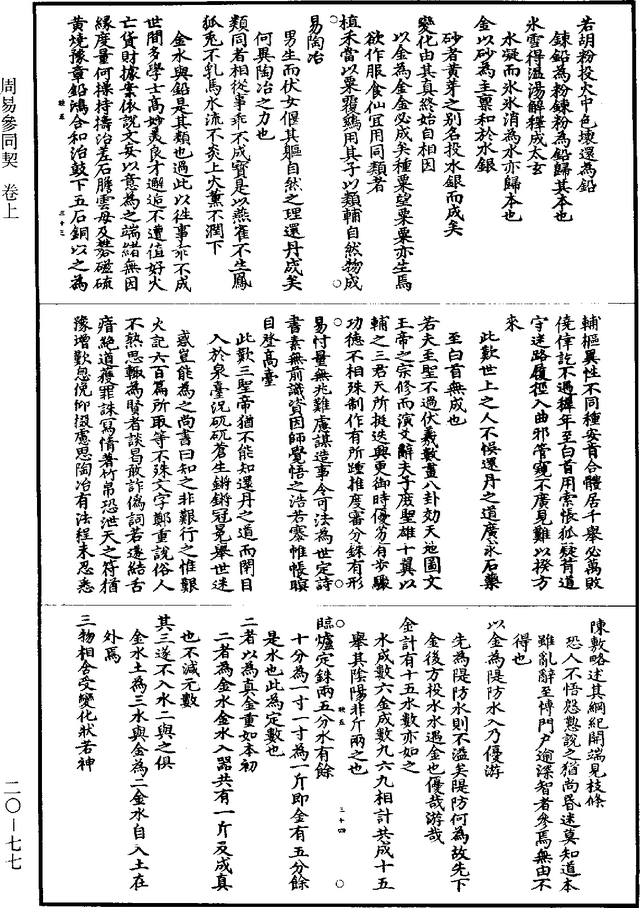 若胡粉投火中色壞還為鉛
鍊鉛為粉鍊粉為鉛歸其本也
氷雪得溫湯解釋成太玄
水凝而氷氷消為水亦歸本也
金以砂為主稟和於水銀
砂者黃芽之别名投水銀而成矣
變化由其真終始自相因
以金為金金必成矣種粟望粟粟亦生焉
欲作服食仙宜用同類者
植禾當以粟覆鷄用其子以類輔自然物成
易陶冶
男生而伏女偃其軀自然之理還丹成矣
何異陶冶之力也
類同者相從事乖不成寳是以燕雀不生鳳
狐兎不乳馬水流不炎上火熏不潤下
金水與鉛是其類也過此以往事乖不成
世間多學士高妙美良才邂逅不遭值好火
亡貨財據案依說文妄以意為之端緒無因
緣度量何操持擣治羌石膽雲母及礬磁硫
黃燒豫章鉛鴻合和治鼓下五石銅以之為
輔樞異性不同種安肯合體居千舉必萬敗
僥倖訖不遇稺年至白首用索悵狐疑背道
守迷路履徑入曲邪管窺不廣見難以揆方
來
此歎世上之人不候還丹之道廣求石藥
至白首無成也
若夫至聖不過伏羲數畫八卦効天地圖文
王帝之宗修而演文辭夫子庶聖雄十翼以
輔之三君天所挺迭興更御時優劣有步驟
功德不相殊制作有所踵推度審分銖有形
易忖量無兆難慮謀造事令可法為世定詩
書素無前識資因師覺悟之浩若褰帷帳瞋
目登高臺
此歎三聖帝猶不能知還丹之道而閉目
入於泉臺況矹矹蒼生鏘鏘冠冕舉世迷
惑豈能為之尚書曰知之非艱行之惟艱
火記六百篇所取等不殊文字鄭重說俗人
不熟思輙為賢者談曷敢詐偽詞若遂結舌
瘖絶道獲罪誅寫情著竹帛恐泄天之符猶
豫增歎息俛仰掇慮思陶冶有法程未忍悉
陳敷略述其綱紀開端見枝條
恐人不悟怨懃說之猶尚昏迷莫知道本
雖亂辭至慱門户逾深智者參焉無由不
得也
以金為隄防水入乃優游
先為隄防水則不溢矣隄防何為故先下
金後方投水水遏金也優哉游哉
金計有十五水數亦如之
水成數六金成數九六九相計共成十五
舉其陰陽非斤兩之也
臨爐定銖兩五分水有餘
十分為一寸一寸為一斤即金有五分餘
是水也此為定數也
二者以為真金重如本初
二者為金水金水入器共有一斤及成真
也不減元數
其三遂不入水二與之俱
金水土為三水與金為二金水自入土在
外焉
三物相含受變化狀若神
周易參同契 卷上
二〇—七七